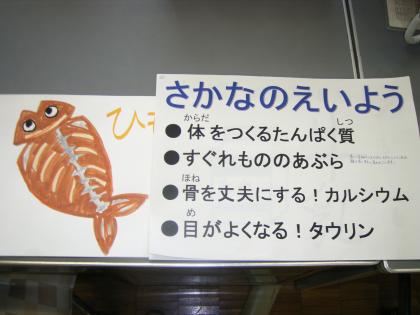 ひ
さかなのえいよう
●体をつくるたんぱく質
からだ
しつ
●すぐれもののあぶら
●骨を丈夫にする！カルシウム
ほね
●目がよくなる！タウリン
め